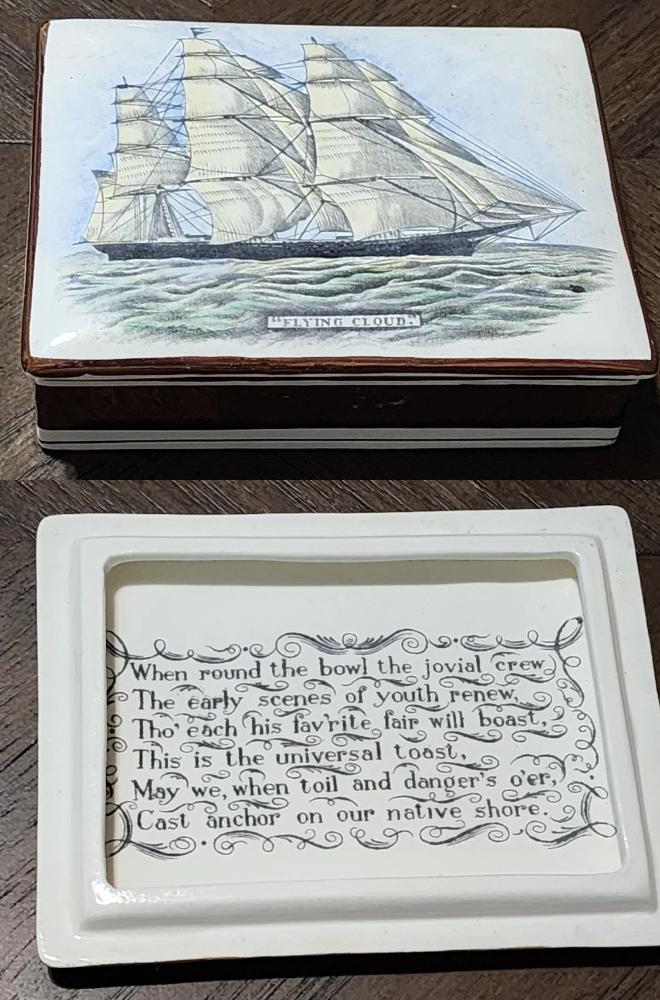 "FLYING CLOUD."
When round the bowl the jovial crew,
The early scenes of youth renew,
Tho' each his fav'rite fair will boast,
This is the universal toast,
May we, when toil and danger's o'er,
Cast anchor on our native shore.